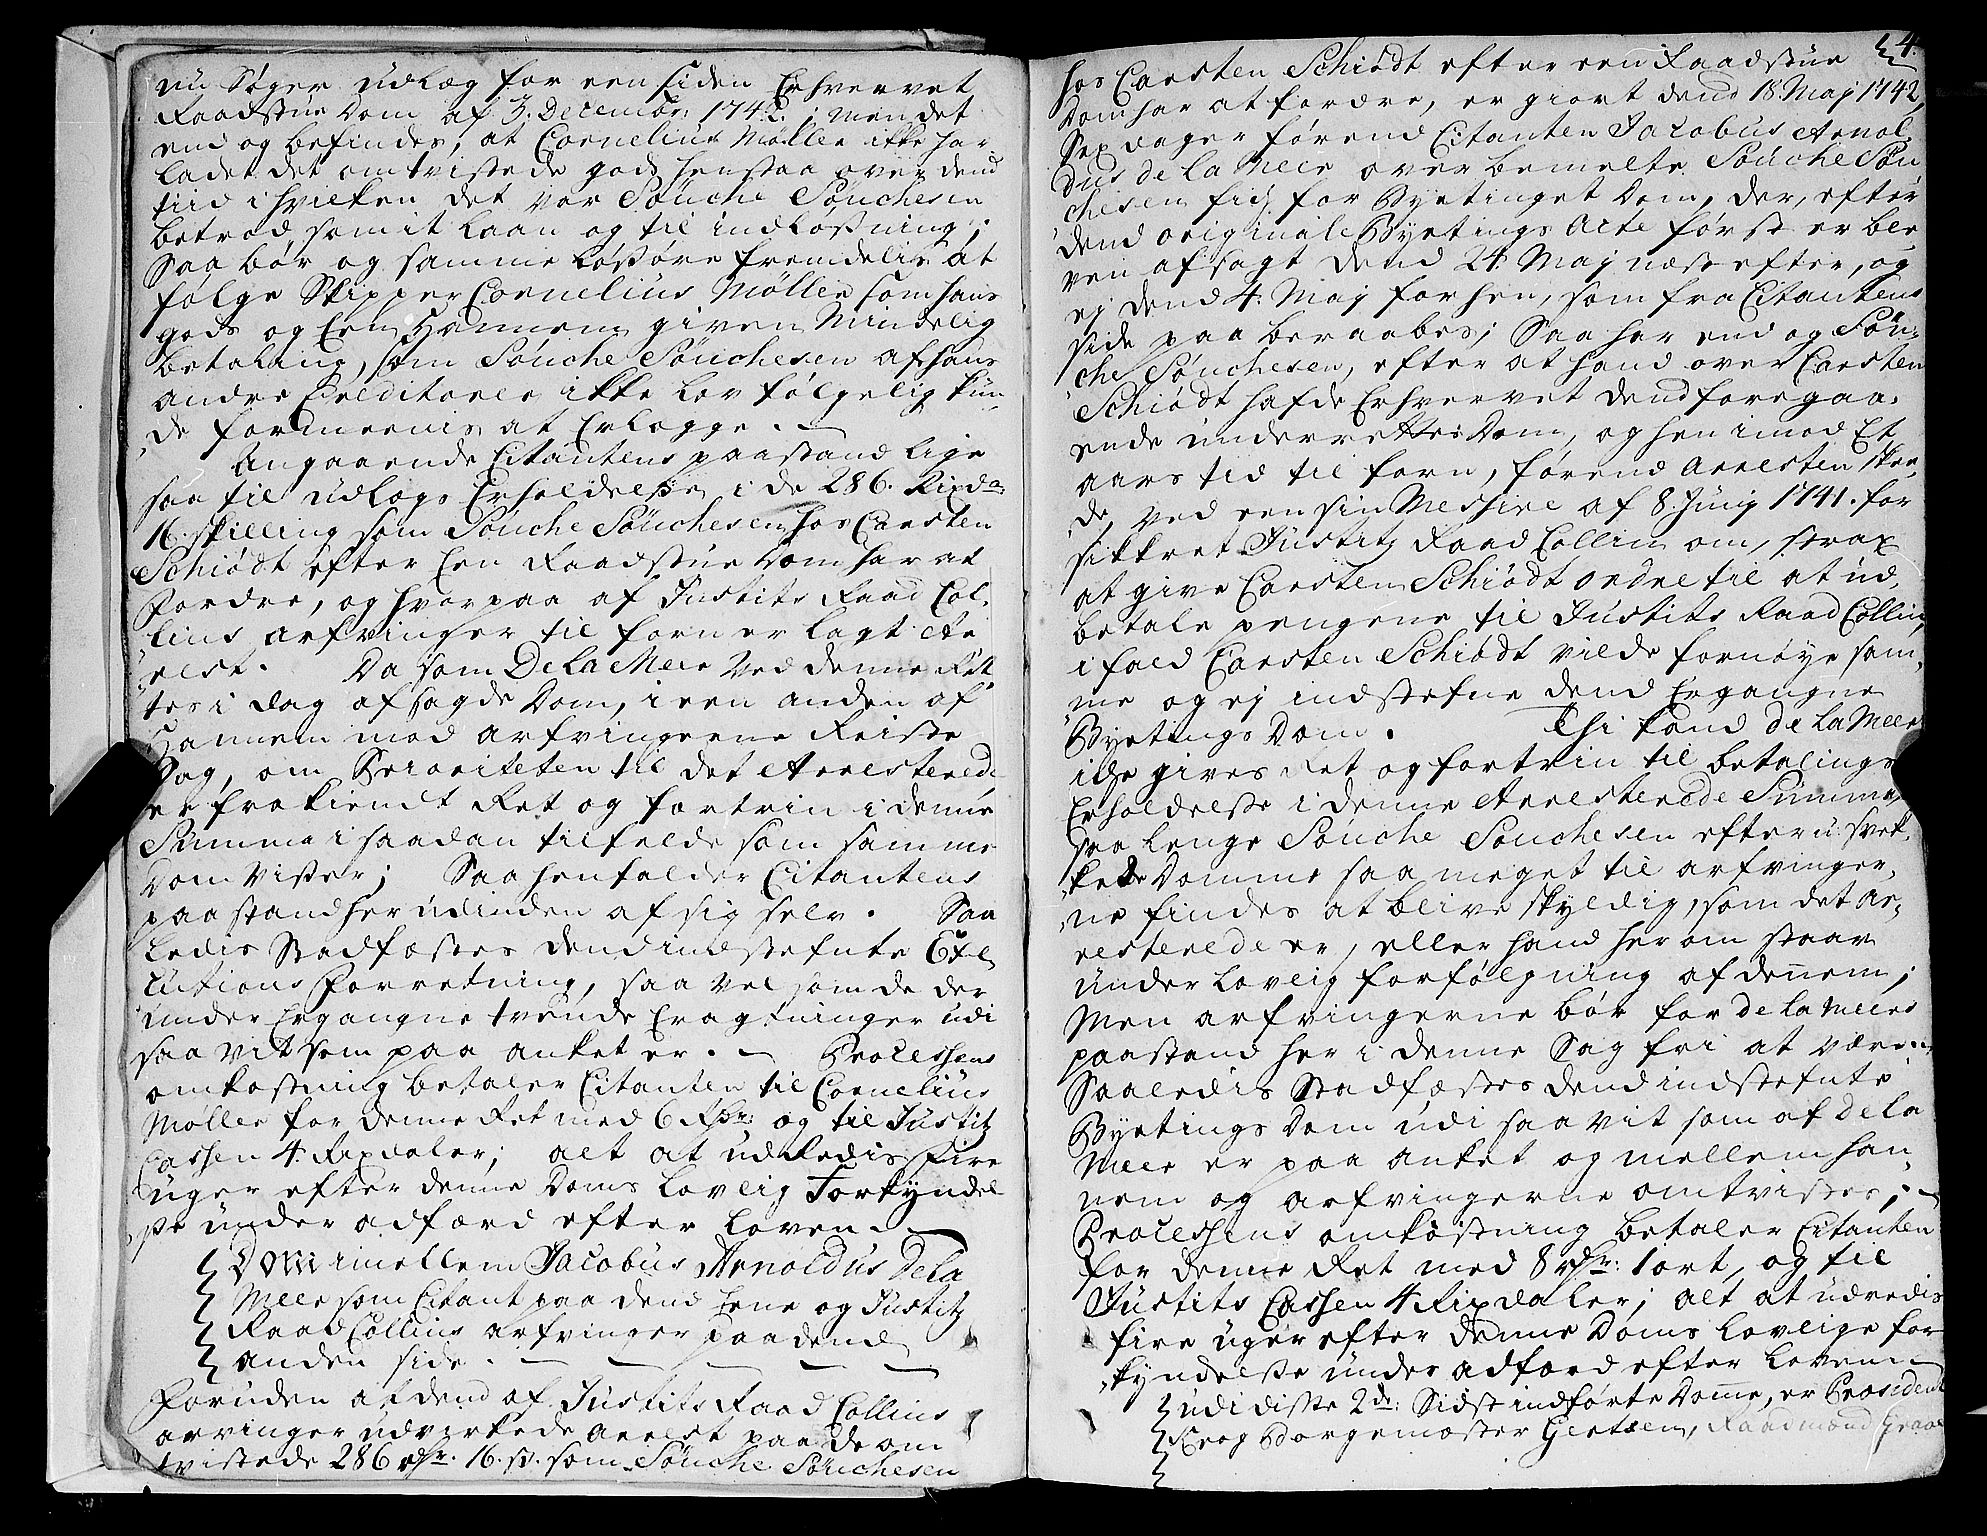 nu Søger udlæg for een siden Erhvervet
Raadstue Dom af 3. Decembr. 1742; men det
end og befindes, at Cornelius Møller ikke har
ladet det omtvistede gods henstaa over dend
tiid i hvilken det var Sønche Sønchesen
betroed, som it Laan og til indløsning;
Saa bør og samme Løsøre fremdelis at
følge Skipper Cornelius Møller som hans
gods og Een Hannem given Mindelig
betaling, som Sønche Sønchesen af hans
andre Creditorer ikke Lovfølgelig kun„
de formeenis at Erlegge. —
Angaaende Citantens paastand lige
saa til udlægs Erholdelse i de 286. Rixdr:
16. skilling som Sønche Sønchesen hos Carsten
Schiødt efter Een Raadstue Dom har at
fordre, og hvorpaa af Justits Raad Col„
lins arfvinger til forn er lagt Ar„
rest. Da som De la Meer ved denne Ret„
tes i dag afsagde Dom, i een anden af
Hannem mod arfvingerne Reiste
Sag, om Prioriteten til det Arresterede
er frakiendt Ret og fortrin i denne
Summa i saadan tilfelde som samme
Dom viser; Saa henfalder Citantens
paastand herudinden af sig selv. Saa
Ledis Stadfæstes dend indstefnte Exe
cutions Forretning, saa vel som de der
under Ergangne tvende Eragtninger udi
saa vit som paa anket er. — Processens
omkostning betaler Citanten til Cornelius
Møller for denne Ret med 6 Rdr: og til Justitz
Cassen 4. Rixdaler; alt at udRedis Fire
uger efter denne Doms Lovlig Forkyndel
se under adfærd efter Loven. —
Dom imellem Jacobus Arnoldus De la
Meer som Citant paa dend Eene og Justitz
Raad Collins arfvinger paa dend
anden side. —
Foruden at dend af Justits Raad Collins
arvinger udvirkede Arrest paa de om
tvistede 286 rdr. 16. s. som Sønche Sønchesen
4.
hos Carsten Schiødt efter een Raadstue
Dom har at fordre, er giort dend 18. Maj 1742,
Sex dager førend Citanten Jacobus Arnol
dus de la Meer over bemelte Sønche Søn
chesen fik for Byetinget Dom, der, efter
dend originale Byetings Acte først er ble
ven afsagt dend 24. Maj næst efter, og
ej dend 4. Maj forhen, som fra Citantens
side paa beraabes; Saa har end og Søn„
che Sønchesen, efter at hand over Carsten
Schiødt hafde Erhvervet dend foregaa„
ende underrettes Dom, og hen imod Et
aars tid til forn, førend Arresten skee
de, ved een sin Messive af 8. Junij 1741. for
sikkret Justitz Raad Collin om, strax
at give Carsten Schiødt ordre til at ud„
betale pengene til Justits Raad Collin,
ifald Carsten Schiødt vilde fornøye sam„
me og ej indstefne dend Ergangne
Byetings Dom. Thi kand de la Meer
ikke gives Ret og fortrin til betalings
Erholdelse i denne Arresterede Summa,
saa Lenge Sønche Sønchesen efter usvek„
kede Domme saa meget til arfvinger„
ne findes at blive skyldig, som det ar„
resterede er, eller hand herom staar
under Lovlig forfølgning af dennem;
Men arfvingerne bør for de la Meers
paastand her i denne Sag fri at være.
Saaledis Stadfæstes dend indstefnte
Byetings Dom udi saa vit som af De la
Meer er paa anket og mellem han„
nem og arfvingerne omtvistes; —
Processens omkostning betaler Citanten
for denne Ret med 8 rdr: 1 ort, og til
Justits Cassen 4 Rixdaler; alt at udredis
fire uger efter denne Doms Lovlige for
kyndelse under adfærd efter Loven
udi disse 2de: Sidst indførte Domme, er Præsident
Krog Borgemester Gertsen, Raadmænd Graae